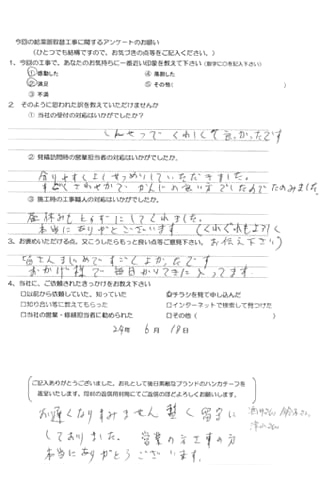 今回の給湯器取替工事に関するアンケートのお願い
(ひとつでも結構ですので、お気づきの点等をご記入ください。)
1、今回の工事で、あなたのお気持ちに一番近い印象を教えて下さい (数字に○を記入下さい)
①感動した ④落胆した
②満足 ⑤その他( )
③不満
2 そのように思われた訳を教えていただけませんか
①当社の受付の対応はいかがでしたか?
しんせつで くわしくて良かったです
②見積訪問時の営業担当者の対応はいかがでしたか。
わかりやすくよくせつめいしていただきました。
かんじの良い方でしたのでたのみました
③施工時の工事職人の対応はいかがでしたか。
昼休みもとらずにしてくれました。
本当にありがとうございます (くれぐれもよろしく
お伝え下さい)
3、お褒めいただける点、又こうしたらもっと良い点等ご意見下さい。
皆さんまじめですごくよかったです
おかげ様で毎日かいてきに入ってます。
4、当社に、ご依頼されたきっかけをお教え下さい
□以前から依頼していた、知っていた ☑チラシを見て申し込んだ
□知り合い等に教えてもらった □インターネットで検索して見つけた
□当社の営業・修繕担当者に勧められた □その他( )
24年 6月 18日
ご記入ありがとうございました。お礼として後日素敵なブランドのハンカチーフを
進呈いたします。同封の返信用封筒にてご返信のほどよろしくお願いします。
お遅くなりすみません 暫く留守に
しておりました。 営業の方工事の方
本当にありがとうございます。